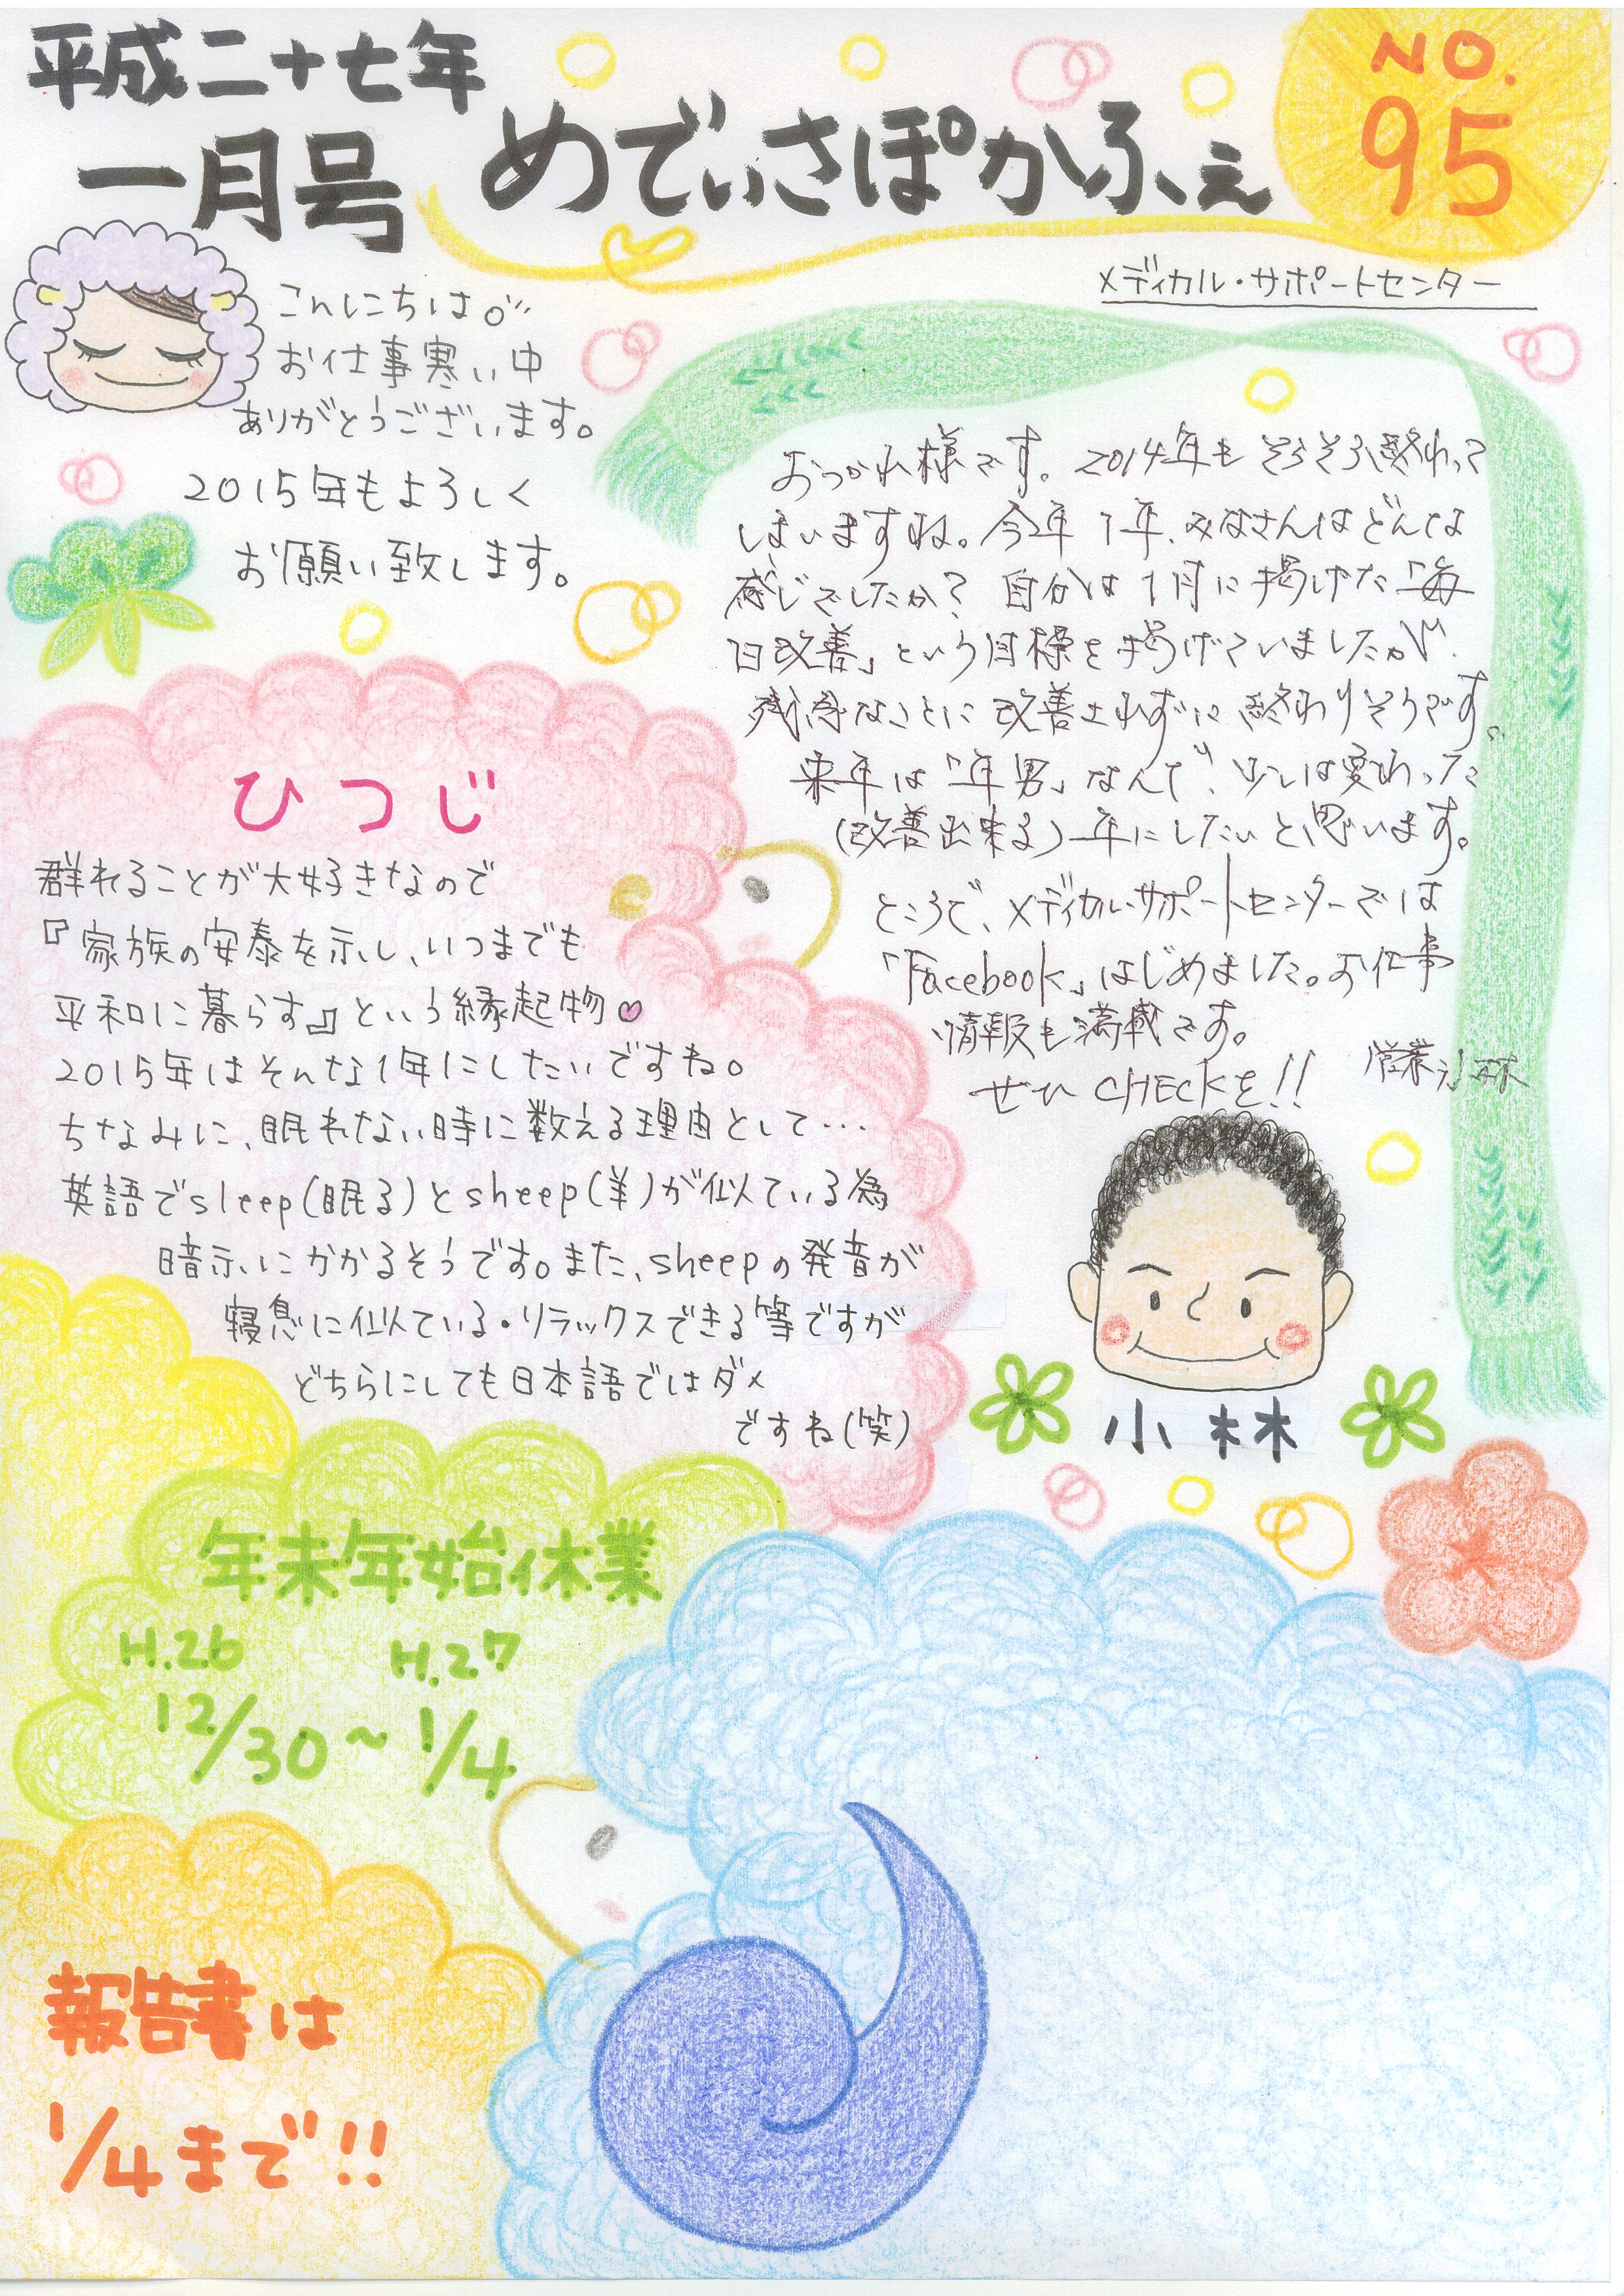 平成二十七年
一月号
めでぃさぽかふぇ
NO.
95
メディカル・サポートセンター
こんにちは。
お仕事寒い中
ありがとうございます。
2015年もよろしく
お願い致します。
おつかれ様です。2014年もそろそろ終わって
しまいますね。今年1年、みなさんはどんな
感じでしたか？自分は1月に掲げた「毎
日改善」という目標を掲げていましたが、
残念なことに改善されずに終わりそうです。
来年は「年男」なんで、少しは変わった
(改善出来る)一年にしたいと思います。
ところで、メディカルサポートセンターでは
「Facebook」はじめました。お仕事
情報も満載です。
ぜひCHECKを!!
営業小林
小林
ひつじ
群れることが大好きなので
『家族の安泰を示し、いつまでも
平和に暮らす』という縁起物♡
2015年はそんな1年にしたいですね。
ちなみに、眠れない時に数える理由として…
英語でsleep(眠る)とsheep(羊)が似ている為
暗示にかかるそうです。また、sheepの発音が
寝息に似ている・リラックスできる等ですが
どちらにしても日本語ではダメ
ですね(笑)
年末年始休業
H.26 H.27
12/30～1/4
報告書は
1/4まで!!